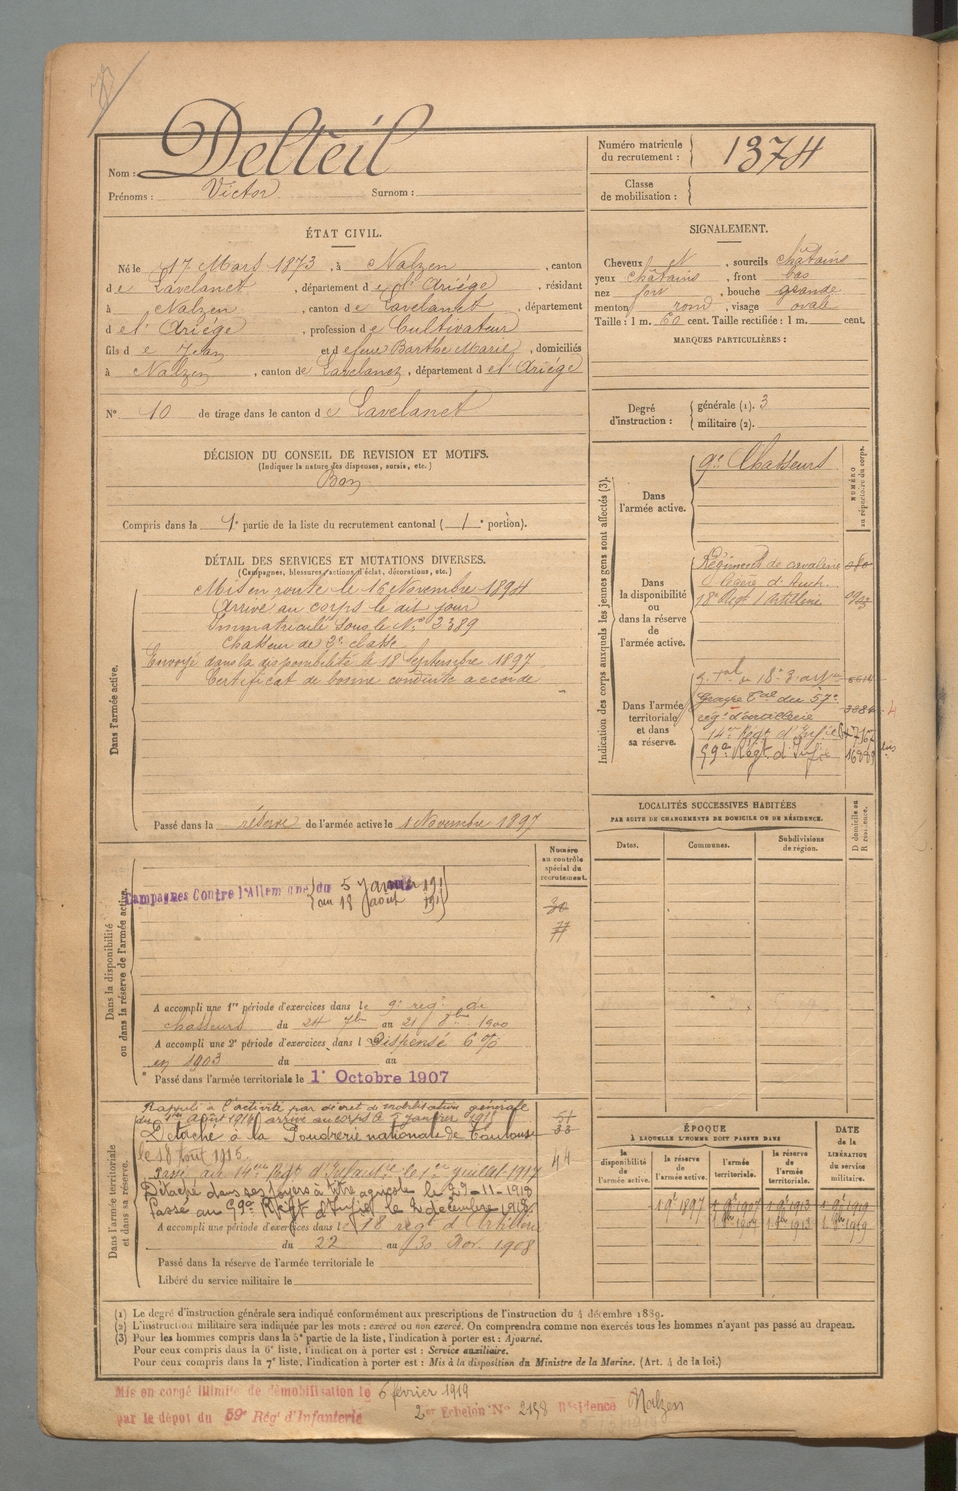 Nom : Delteil
Prénoms : Victor Surnom :
Numéro matricule du recrutement : 1374
Classe de mobilisation :
ÉTAT CIVIL.
Né le 17 Mars 1873, à Nalzen, canton
de Lavelanet, département de l'Ariège, résidant
à Nalzen, canton de Lavelanet, département
de l'Ariège, profession de Cultivateur
fils de Jean et de feue Barthe Marie, domiciliés
à Nalzen, canton de Lavelanet, département de l'Ariège
N° 10 de tirage dans le canton de Lavelanet
SIGNALEMENT.
Cheveux N, sourcils châtains
yeux châtains, front bas
nez fort, bouche grande
menton rond, visage ovale
Taille : 1 m. 60 cent. Taille rectifiée : 1 m. cent.
MARQUES PARTICULIÈRES :
Degré d'instruction : générale (1). 3
militaire (2).
DÉCISION DU CONSEIL DE REVISION ET MOTIFS.
(Indiquer la nature des dispenses, sursis, etc.)
Bon
Compris dans la 1e partie de la liste du recrutement cantonal (1e portion).
DÉTAIL DES SERVICES ET MUTATIONS DIVERSES.
(Campagnes, blessures, actions d'éclat, décorations, etc.)
Dans l'armée active.
Mis en route le 16 Novembre 1894
Arrivé au corps le dit jour
Immatriculé sous le N° 3389
Chasseur de 2e classe
Envoyé dans la disponibilité le 18 Septembre 1897
Certificat de bonne conduite accordé
Passé dans la réserve de l'armée active le 1 Novembre 1897
Indication des corps auxquels les jeunes gens sont affectés (3).
NUMÉRO au répertoire du corps.
Dans l'armée active.
9e Chasseurs
Dans la disponibilité ou dans la réserve de l'armée active.
Régiments de cavalerie
légère d'Auch
18e Régt d'Artillerie
Dans l'armée territoriale et dans sa réserve.
Groupe Tal du 57e
rég. d'artillerie
14e Régt d'Infie
59e Régt d'Infie
LOCALITÉS SUCCESSIVES HABITÉES
PAR SUITE DE CHANGEMENTS DE DOMICILE OU DE RÉSIDENCE.
Dates. Communes. Subdivisions de région. D domicile ou R résidence.
Dans la disponibilité ou dans la réserve de l'armée active.
Numéro au contrôle spécial du recrutement.
Campagnes Contre l'Allemagne du 5 Janvier
au 18 août
30
77
A accompli une 1re période d'exercices dans le 9e rég. de
chasseurs du 24 7bre au 21 8bre 1900
A accompli une 2e période d'exercices dans l Dispensé 6%
en 1903 du au
Passé dans l'armée territoriale le 1er Octobre 1907
Dans l'armée territoriale et dans sa réserve.
Rappelé à l'activité par décret de mobilisation générale
du 1er Août 1914 arrivé au corps le 5 janvier 1915
Détaché à la Poudrerie nationale de Toulouse
le 18 Août 1915
Passé au 14e Régt d'Infanterie le 1er juillet 1917
Détaché dans ses foyers à titre agricole le 29-11-1918
Passé au 59e Régt d'Infie le 2 décembre 1918
A accompli une période d'exercices dans le 18 rég. d'Artillerie
du 22 au 30 Nov. 1908
Passé dans la réserve de l'armée territoriale le
Libéré du service militaire le
51
33
44
ÉPOQUE
À LAQUELLE L'HOMME DOIT PASSER DANS
DATE de la LIBÉRATION du service militaire.
la disponibilité de l'armée active. la réserve de l'armée active. l'armée territoriale. la réserve de l'armée territoriale.
1 9bre 1897 1 9bre 1907 1 9bre 1913 1 9bre 1919
1 8bre 1907 1 8bre 1913 1 8bre 1919
(1) Le degré d'instruction générale sera indiqué conformément aux prescriptions de l'instruction du 4 décembre 1889.
(2) L'instruction militaire sera indiquée par les mots : exercé ou non exercé. On comprendra comme non exercés tous les hommes n'ayant pas passé au drapeau.
(3) Pour les hommes compris dans la 5e partie de la liste, l'indication à porter est : Ajourné.
Pour ceux compris dans la 6e liste, l'indication à porter est : Service auxiliaire.
Pour ceux compris dans la 7e liste, l'indication à porter est : Mis à la disposition du Ministre de la Marine. (Art. 4 de la loi.)
Mis en congé illimité de démobilisation le 6 février 1919
par le dépôt du 59e Rég. d'Infanterie
2er Echelon N° 2158 Résidence Nalzen